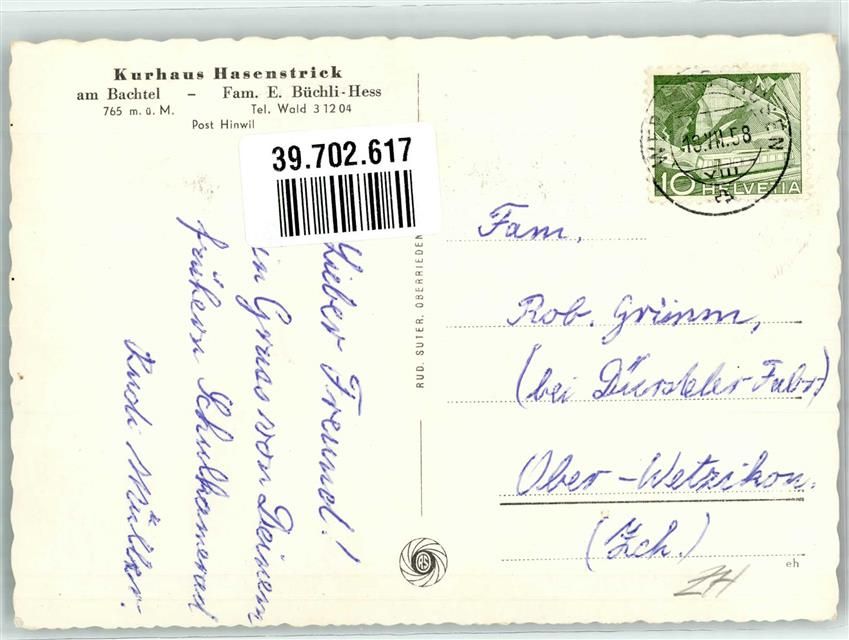 Kurhaus Hasenstrick
am Bachtel – Fam. E. Büchli-Hess
765 m. ü. M. Tel. Wald 3 12 04
Post Hinwil
39.702.617
Lieber Freund!
in Gruss von Deinem
frühern Schulkamerad
Ruedi Müller.
RUD. SUTER, OBERRIEDEN
RS
18.VII.58
10 HELVETIA
Fam,
Rob. Grimm,
(bei Dürsteler Fabr)
Ober-Wetzikon.
(Zch.)
eh
ZH